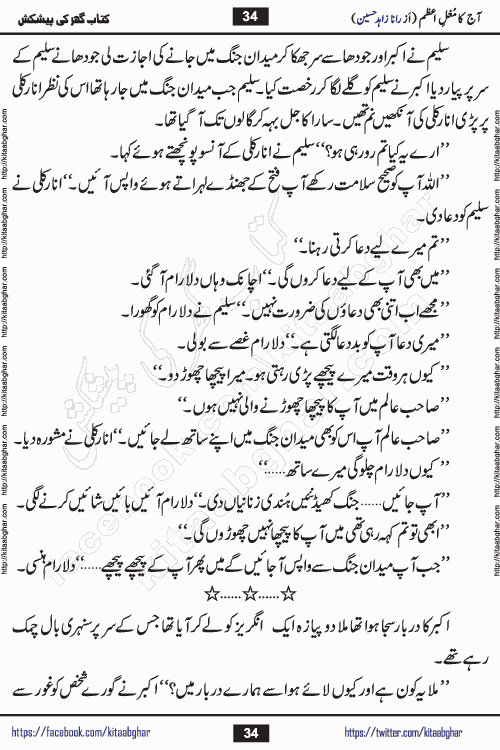 آج کا مُغلِ اعظم (از رانا زاہد حسین)
34
کتاب گھر کی پیشکش
سلیم نے اکبر اور جودھا سے سر جھکا کر میدان جنگ میں جانے کی اجازت لی جودھا نے سلیم کے
سر پر پیار دیا اکبر نے سلیم کو گلے لگا کر رخصت کیا۔ سلیم جب میدان جنگ میں جا رہا تھا اس کی نظر انارکلی
پر پڑی انارکلی کی آنکھیں نم تھیں۔ سارا کاجل بہہ کر گالوں تک آ گیا تھا۔
’’ارے یہ کیا تم رو رہی ہو؟‘‘ سلیم نے انارکلی کے آنسو پونچھتے ہوئے کہا۔
’’اللہ آپ کو صحیح سلامت رکھے آپ فتح کے جھنڈے لہراتے ہوئے واپس آئیں۔‘‘ انارکلی نے
سلیم کو دعا دی۔
’’تم میرے لیے دعا کرتی رہنا۔‘‘
’’میں بھی آپ کے لیے دعا کروں گی۔‘‘ اچانک وہاں دلارام آ گئی۔
’’مجھے اب اتنی بھی دعاؤں کی ضرورت نہیں۔‘‘ سلیم نے دلارام کو گھورا۔
’’میری دعا آپ کو بددعا لگتی ہے۔‘‘ دلارام غصے سے بولی۔
’’کیوں ہر وقت میرے پیچھے پڑی رہتی ہو۔ میرا پیچھا چھوڑ دو۔‘‘
’’صاحب عالم میں آپ کا پیچھا چھوڑنے والی نہیں ہوں۔‘‘
’’صاحب عالم آپ اس کو بھی میدان جنگ میں اپنے ساتھ لے جائیں۔‘‘ انارکلی نے مشورہ دیا۔
’’کیوں دلارام چلو گی میرے ساتھ......‘‘
’’آپ جائیں...... جنگ کھیڈ نئیں ہُندی زنانیاں دی۔‘‘ دلارام آئیں بائیں شائیں کرنے لگی۔
’’ابھی تو تم کہہ رہی تھی میں آپ کا پیچھا نہیں چھوڑوں گی۔‘‘
’’جب آپ میدان جنگ سے واپس آ جائیں گے میں پھر آپ کے پیچھے پیچھے......‘‘ دلارام ہنسی۔
☆......☆......☆
اکبر کا دربار سجا ہوا تھا ملا دو پیازہ ایک انگریز کو لے کر آیا تھا جس کے سر پر سنہری بال چمک
رہے تھے۔
’’ملا یہ کون ہے اور کیوں لائے ہو اسے ہمارے دربار میں؟‘‘ اکبر نے گورے شخص کو غور سے
https://facebook.com/kitaabghar
34
https://twitter.com/kitaabghar
http://kitaabghar.com http://kitaabghar.com http://kitaabghar.com http://kitaabghar.com http://kitaabghar.com http://kitaabghar.com
http://kitaabghar.com http://kitaabghar.com http://kitaabghar.com http://kitaabghar.com http://kitaabghar.com http://kitaabghar.com